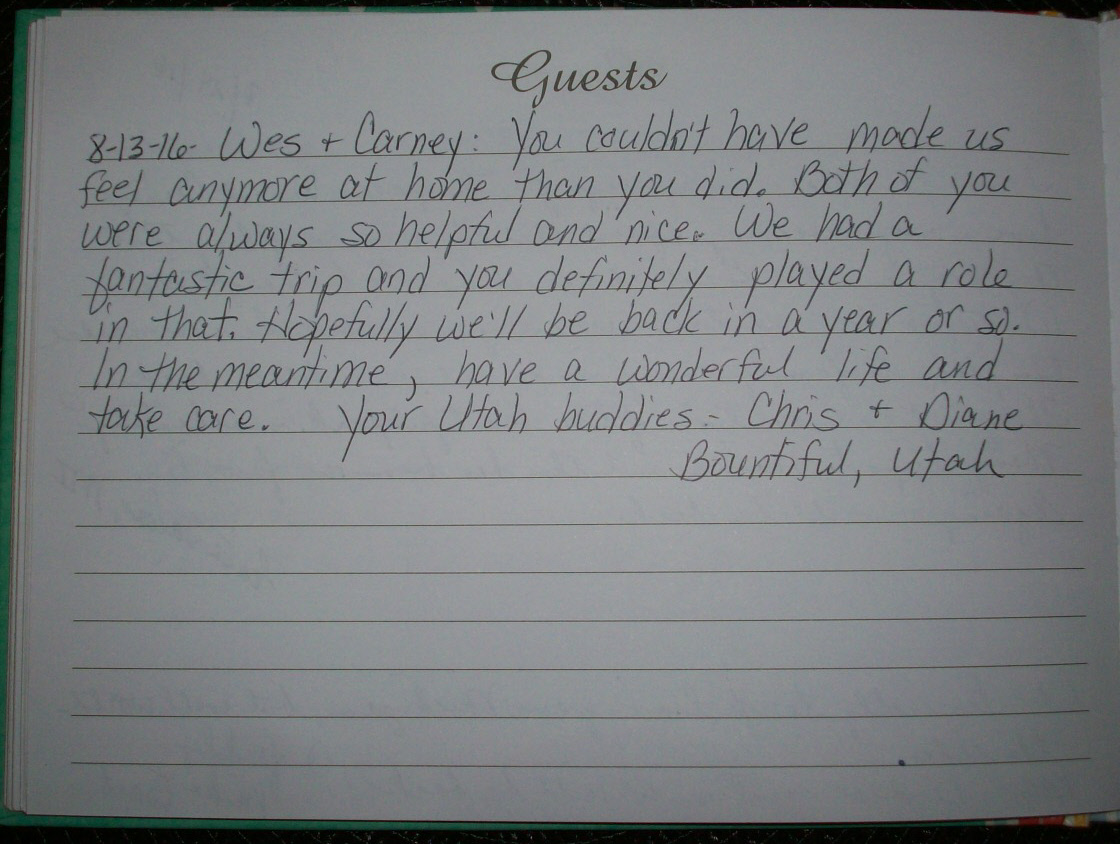 Guests
8-13-16- Wes + Carney: You couldn't have made us
feel anymore at home than you did. Both of you
were always so helpful and nice. We had a
fantastic trip and you definitely played a role
in that. Hopefully we'll be back in a year or so.
In the meantime, have a wonderful life and
take care. Your Utah buddies - Chris + Diane
Bountiful, Utah